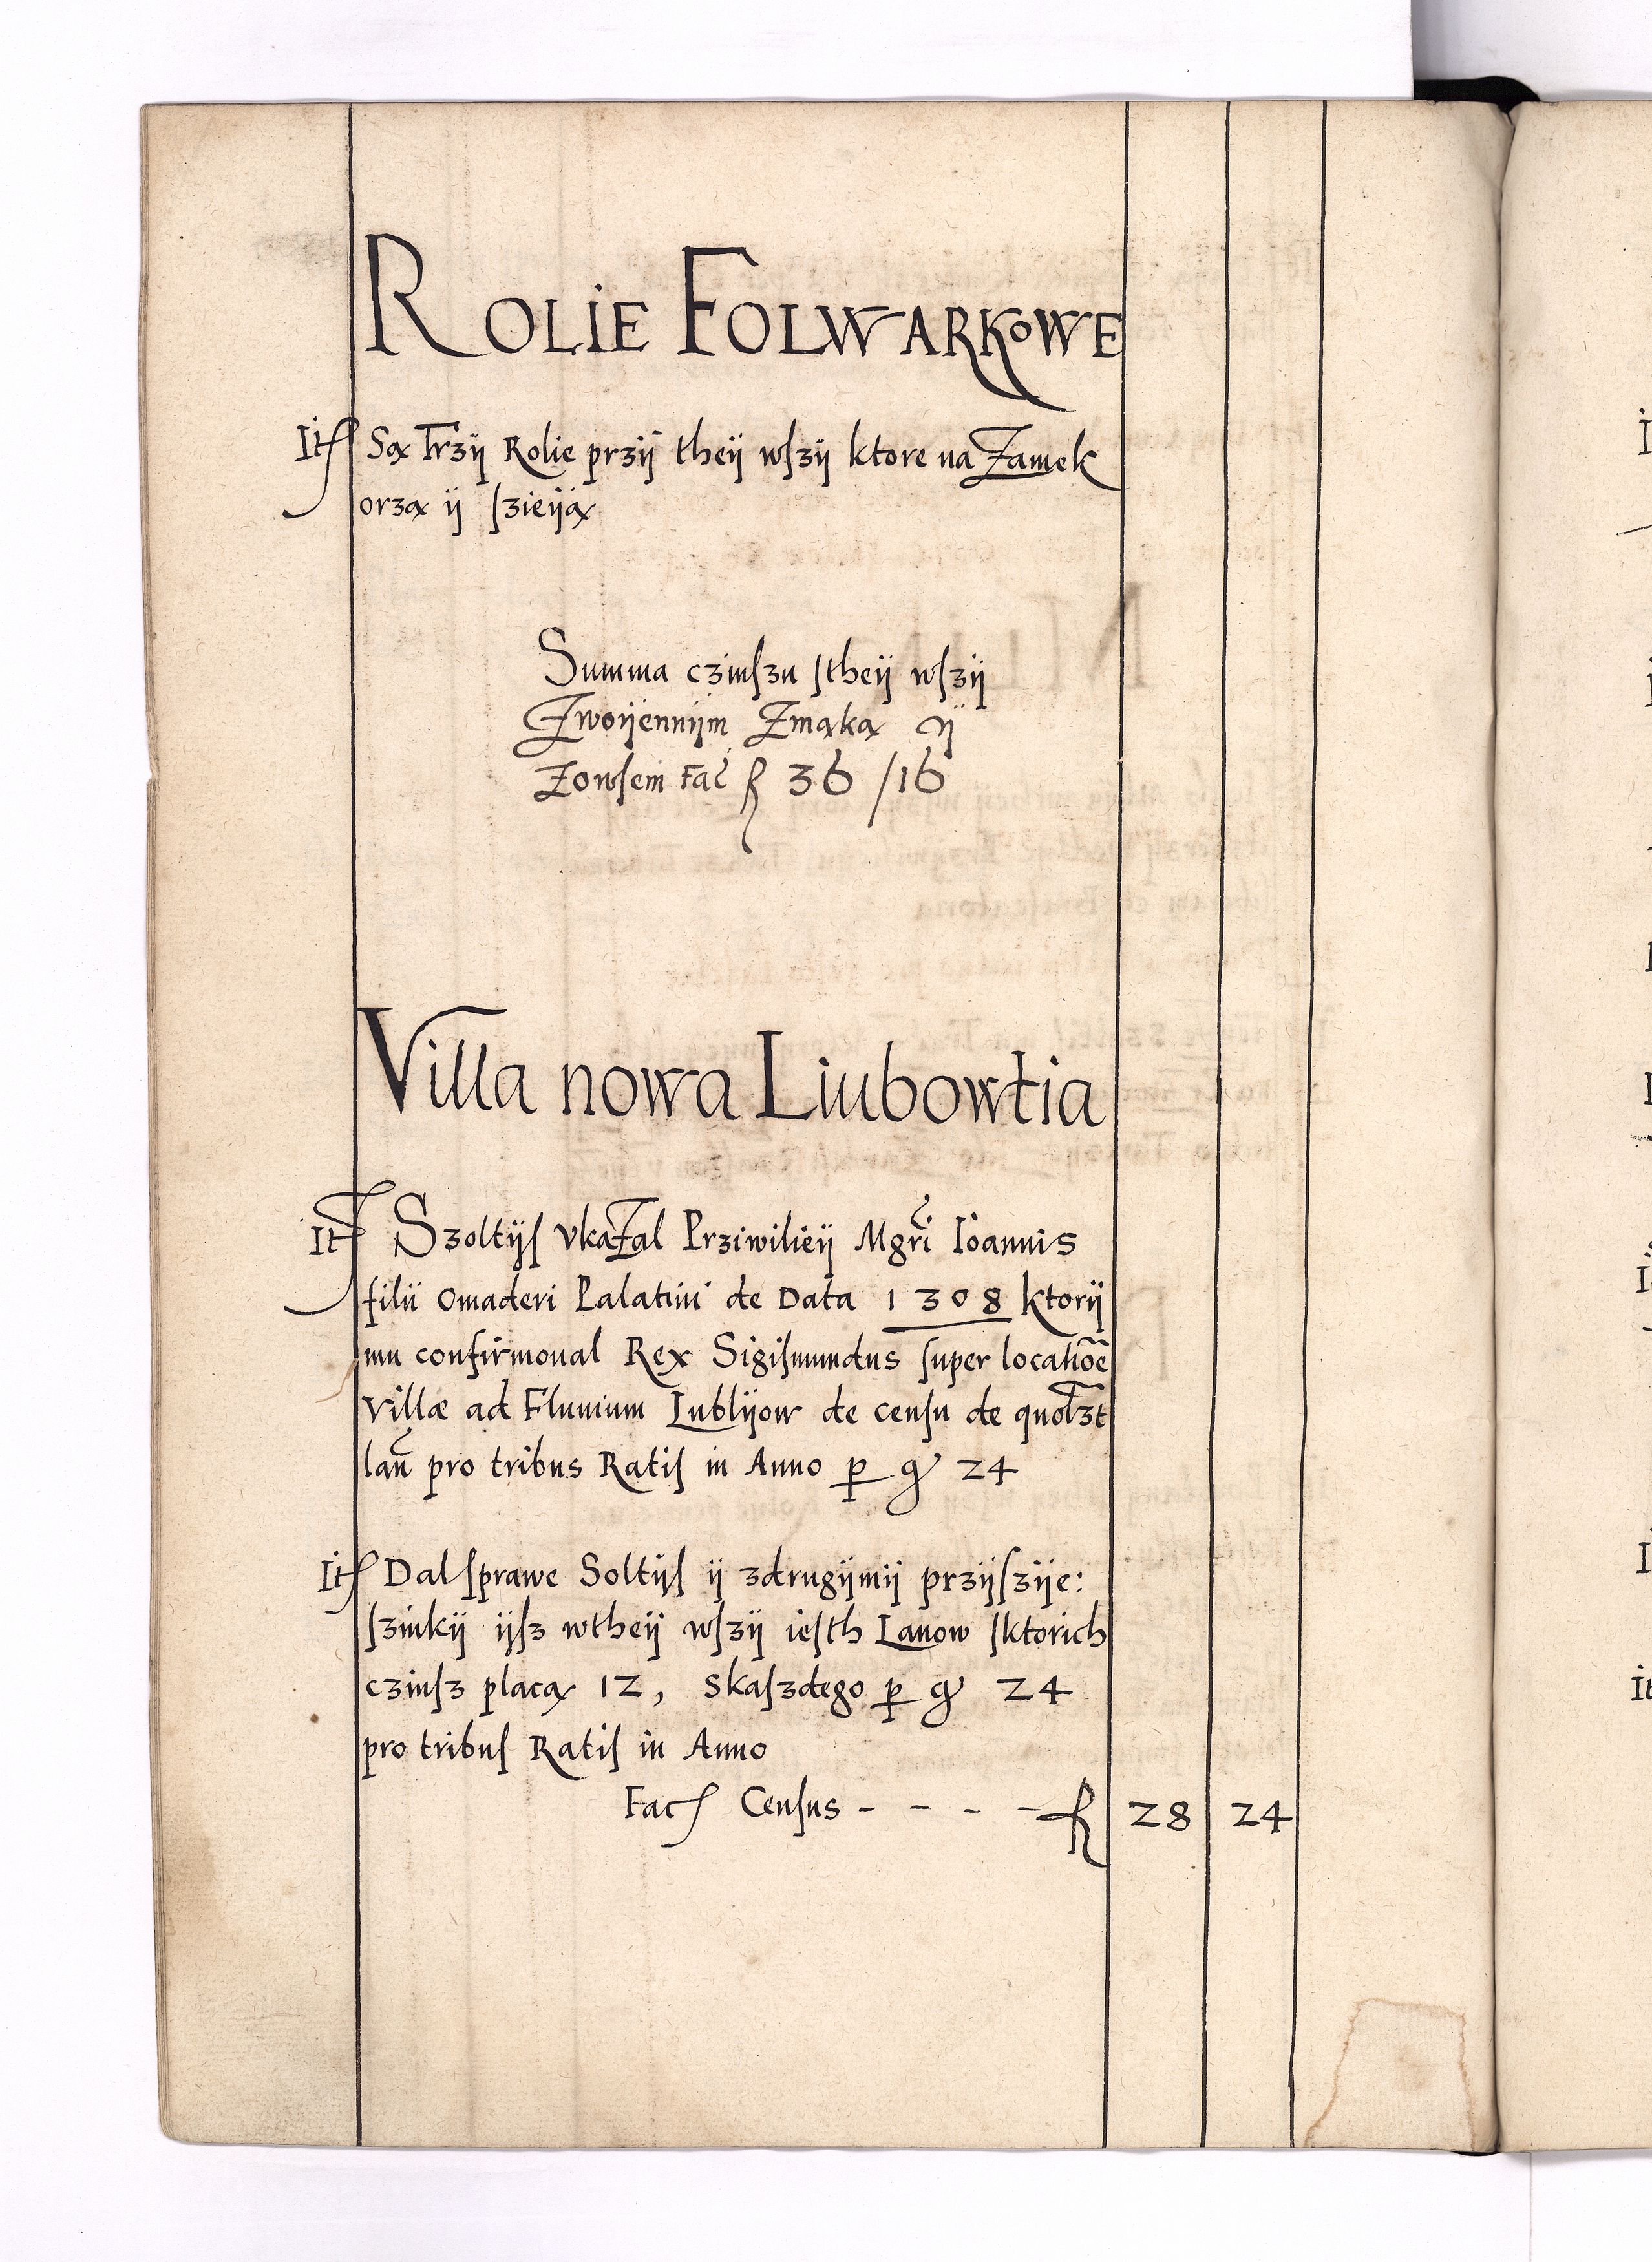 ROLIE FOLWARKOWE
Itſ Są Trzÿ Rolie przÿ theÿ wſzÿ ktore na Zamek
orzą ÿ ſzieÿą
Summa czinſzu ſtheÿ wſzÿ
Zwoÿennÿm Zmąką ÿ
Zowſem Fać f 36 /16
Villa nowa Liubowtia
It Szoltÿſ vkaZal Prziwilieÿ Mgri Ioannis
filii Omaderi Palatini de Data 1308 ktorÿ
mu confirmoual Rex Sigiſmundus ſuper locatiōe
Villæ ad Fluuium Lublÿow de cenſu de quolzt
lan̄ pro tribus Ratiſ in Anno p gͬ 24
Itſ Dal ſprawe Soltÿſ ÿ zdrugÿmÿ przÿſzÿe:
ſzinkÿ ÿſz wtheÿ wſzÿ ieſth Lanow ſktorich
czinſz placą 12, Skaſzdego p gͬ 24
pro tribuſ Ratiſ in Anno
Facſ Cenſus - - - - f 28 24